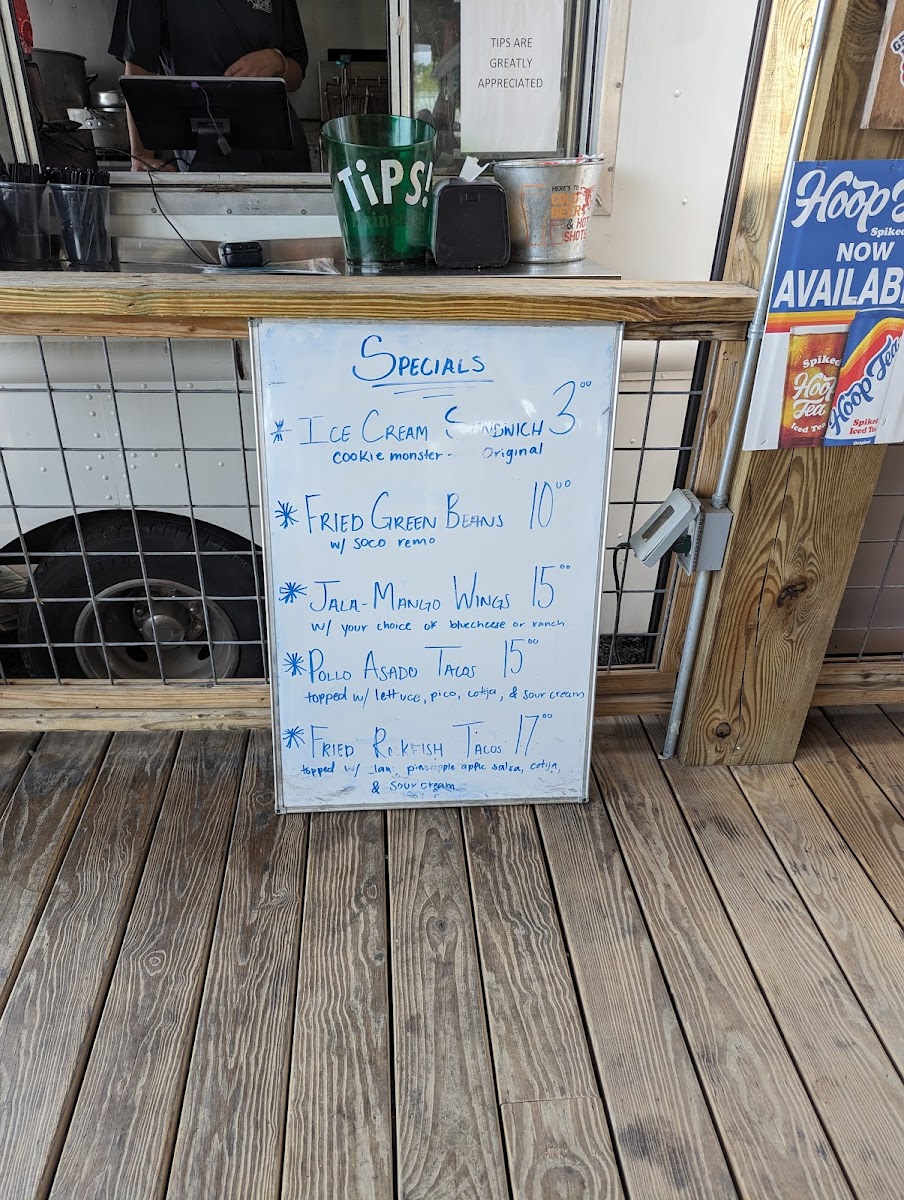 TIPS ARE
GREATLY
APPRECIATED
TiPS!
HERE'S TO
BEER
& HOT
SHOTS
Hoop
Spiked
NOW
AVAILAB
Spiked
Hoop
Tea
Iced Tea
Hoop Tea
Spiked
Iced Tea
Original
SPECIALS
* ICE CREAM SANDWICH 3⁰⁰
cookie monster - Original
* FRIED GREEN BEANS 10⁰⁰
w/ soco remo
* JALA-MANGO WINGS 15⁰⁰
w/ your choice of bluecheese or ranch
* POLLO ASADO TACOS 15⁰⁰
topped w/ lettuce, pico, cotija, & sour cream
* FRIED ROCKFISH TACOS 17⁰⁰
topped w/ pineapple apple salsa, cotija,
& sour cream